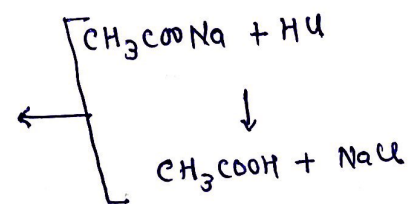 CH₃COONa + HCl
↓
CH₃COOH + NaCl